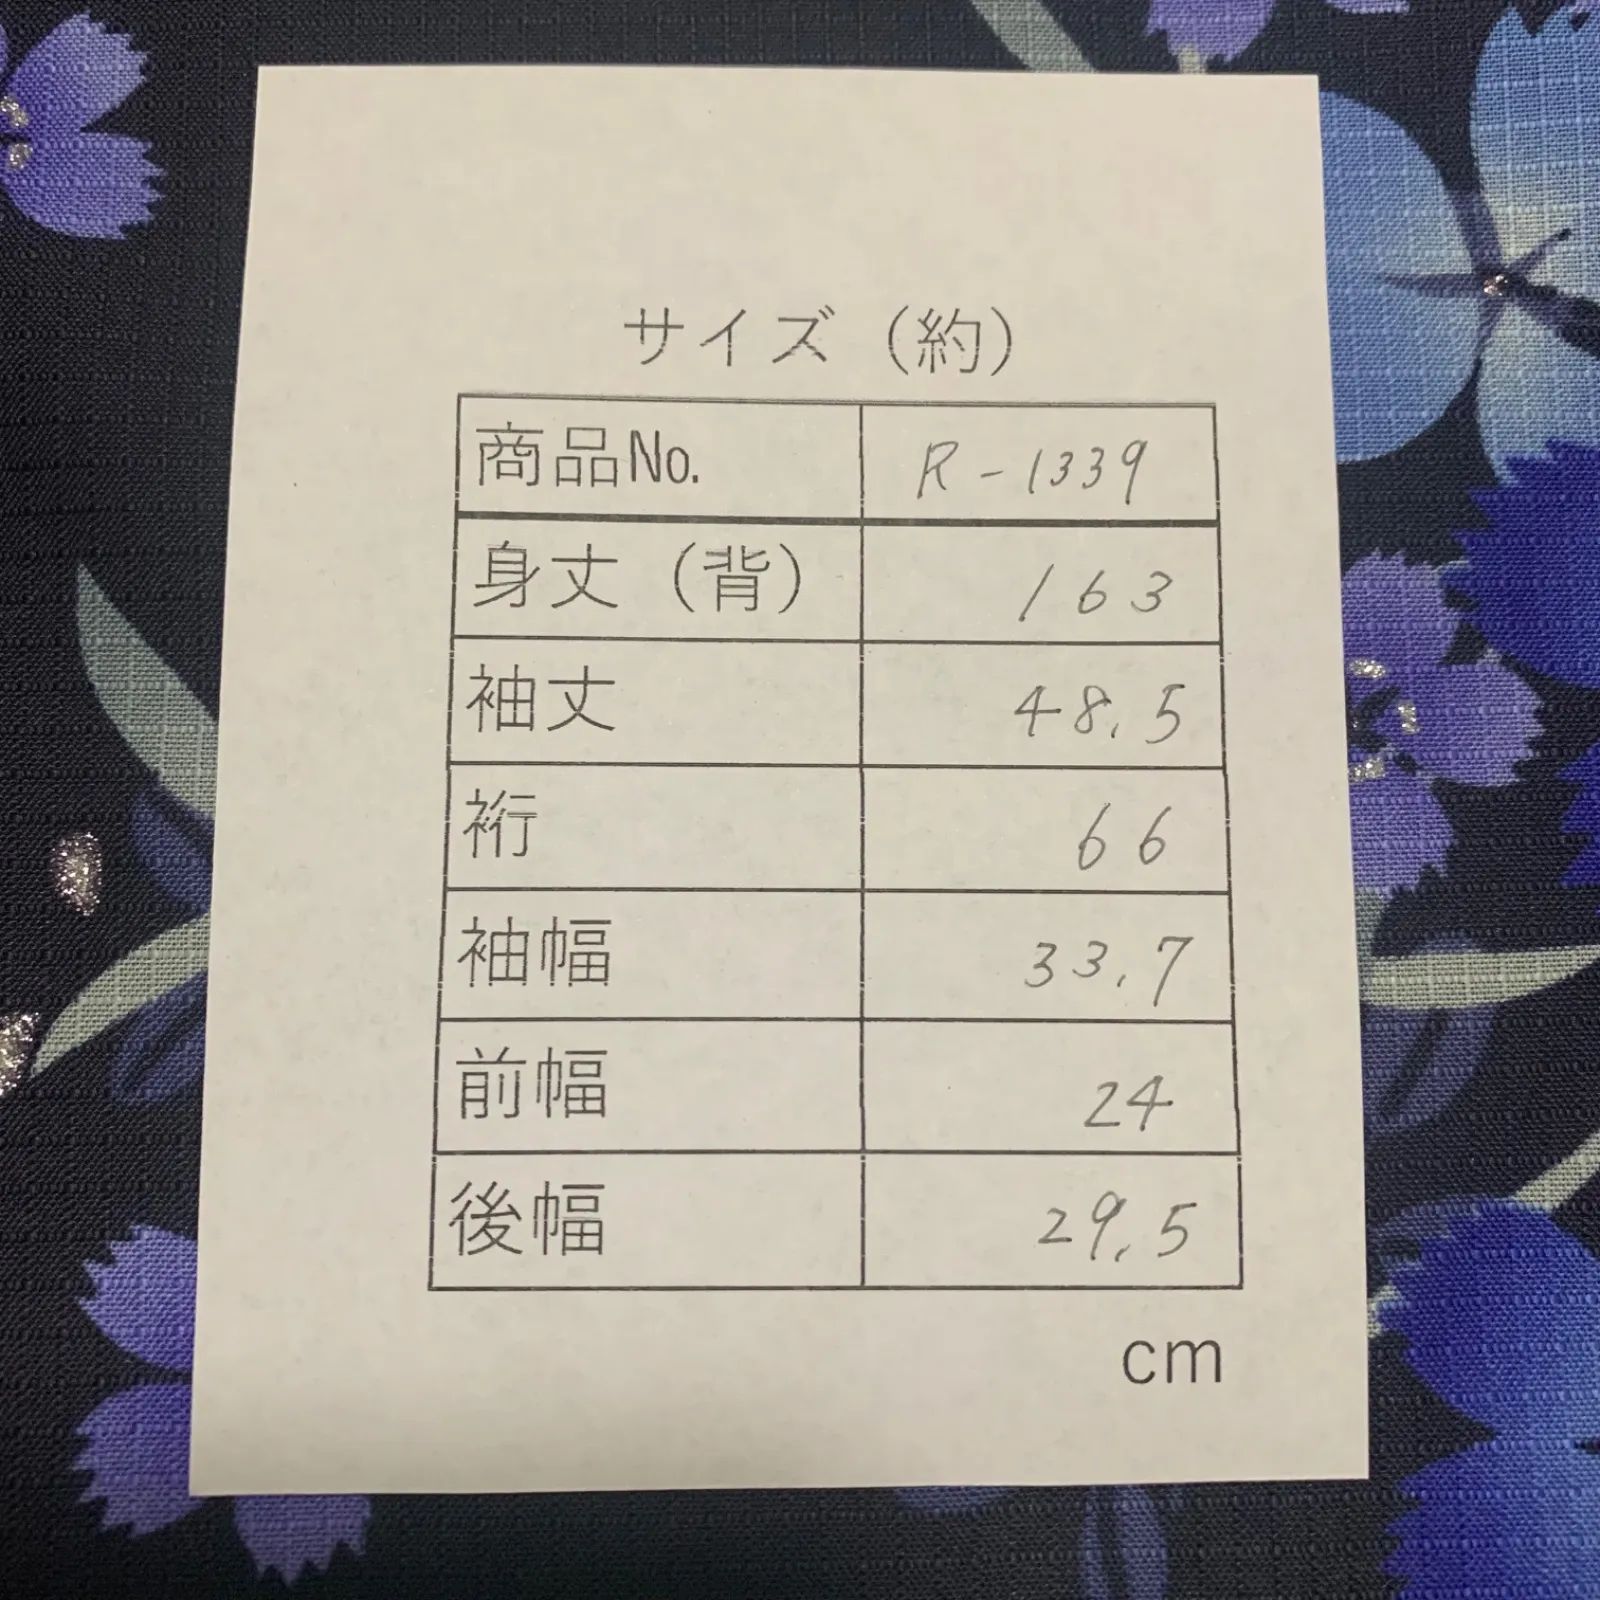 サイズ（約）
商品No. R-1339
身丈（背） 163
袖丈 48.5
裄 66
袖幅 33.7
前幅 24
後幅 29.5
cm